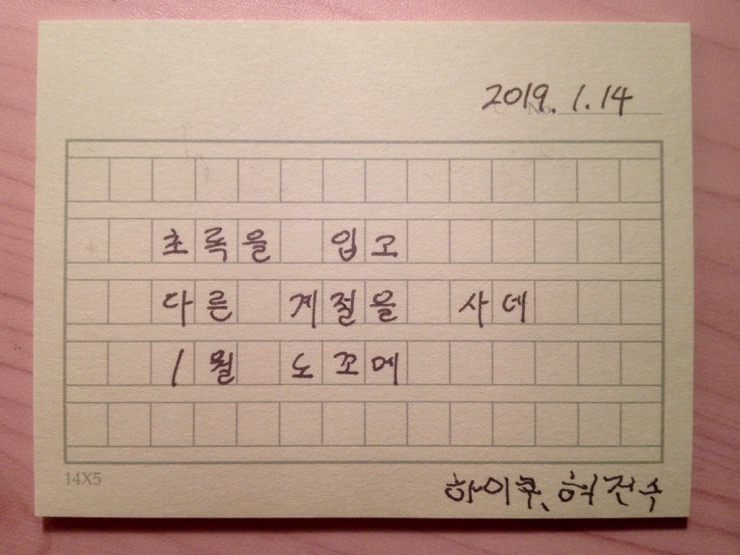 2019. 1. 14
No.
초록을 입고
다른 계절을 사네
1월 노꼬메
14X5
하이쿠, 허전수